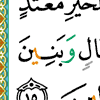 لْخَيْرِ مُعْتَدٍ
الٍ وَبَنِينَ
١٥